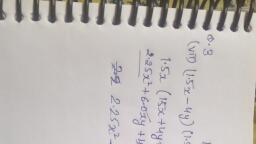 0.9
(vii) (1.5x - 4y) (1.
1.5x (1.5x + 4y
2.25x² + 6.0xy +
2.25x² -